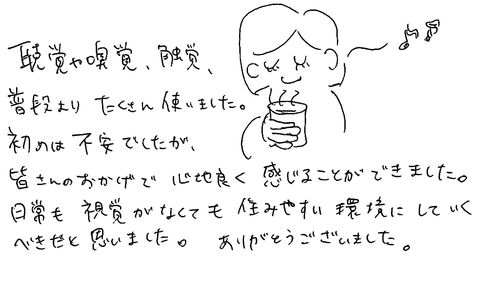 聴覚や嗅覚、触覚、
普段より たくさん 使いました。
初めは 不安でしたが、
皆さんのおかげで 心地良く 感じることができました。
日常も 視覚がなくても 住みやすい 環境に していく
べきだと 思いました。 ありがとうございました。